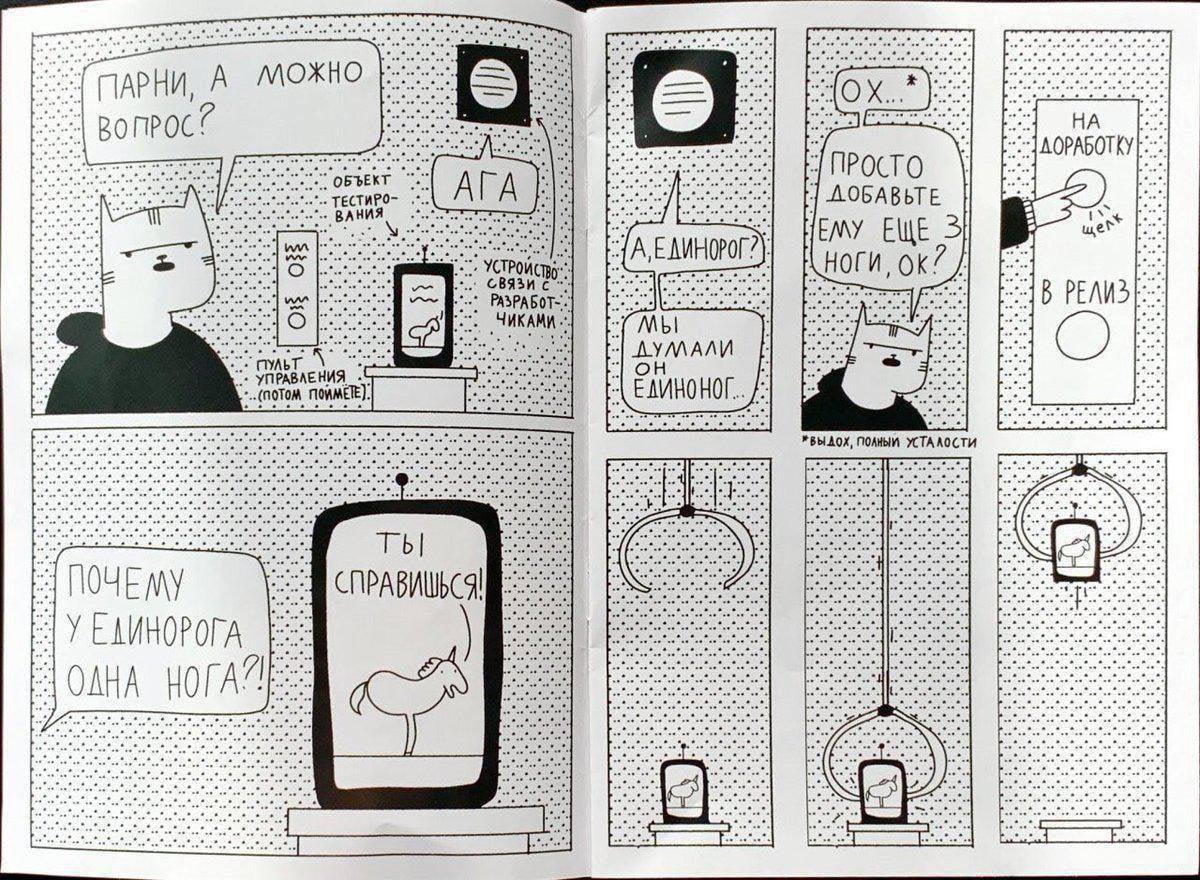 ПАРНИ, А МОЖНО
ВОПРОС?
АГА
ОБЪЕКТ
ТЕСТИРО-
ВАНИЯ
УСТРОЙСТВО
СВЯЗИ С
РАЗРАБОТ-
ЧИКАМИ
ПУЛЬТ
УПРАВЛЕНИЯ
(ПОТОМ ПОЙМЕТЕ)
ПОЧЕМУ
У ЕДИНОРОГА
ОДНА НОГА?!
ТЫ
СПРАВИШЬСЯ!
А, ЕДИНОРОГ?
МЫ
ДУМАЛИ
ОН
ЕДИНОНОГ...
ОХ...*
ПРОСТО
ДОБАВЬТЕ
ЕМУ ЕЩЕ 3
НОГИ, ОК?
*ВЫДОХ, ПОЛНЫЙ УСТАЛОСТИ
НА
ДОРАБОТКУ
ЩЕЛК
В РЕЛИЗ